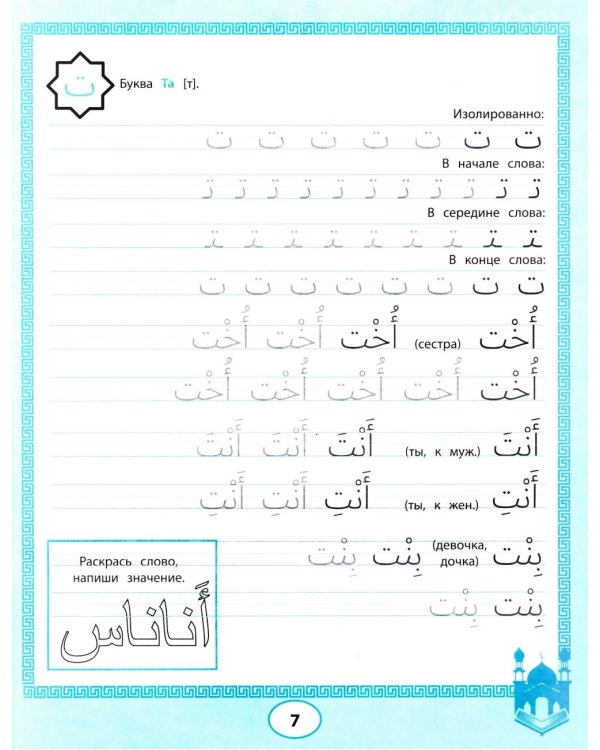 ت Буква Та [т].
Изолированно:
ت ت ت ت ت ت ت
В начале слова:
تـ تـ تـ تـ تـ تـ تـ تـ تـ تـ
В середине слова:
ـتـ ـتـ ـتـ ـتـ ـتـ ـتـ ـتـ ـتـ ـتـ
В конце слова:
ـت ـت ـت ـت ـت ـت ـت ـت
أُخْت (сестра) أُخْت أُخْت أُخْت
أُخْت أُخْت أُخْت أُخْت أُخْت
أَنْتَ (ты, к муж.) أَنْتَ أَنْتَ أَنْتَ
أَنْتِ (ты, к жен.) أَنْتِ أَنْتِ أَنْتِ
بِنْت (девочка, дочка) بِنْت بِنْت
بِنْت بِنْت
Раскрась слово,
напиши значение.
أَناناس
7